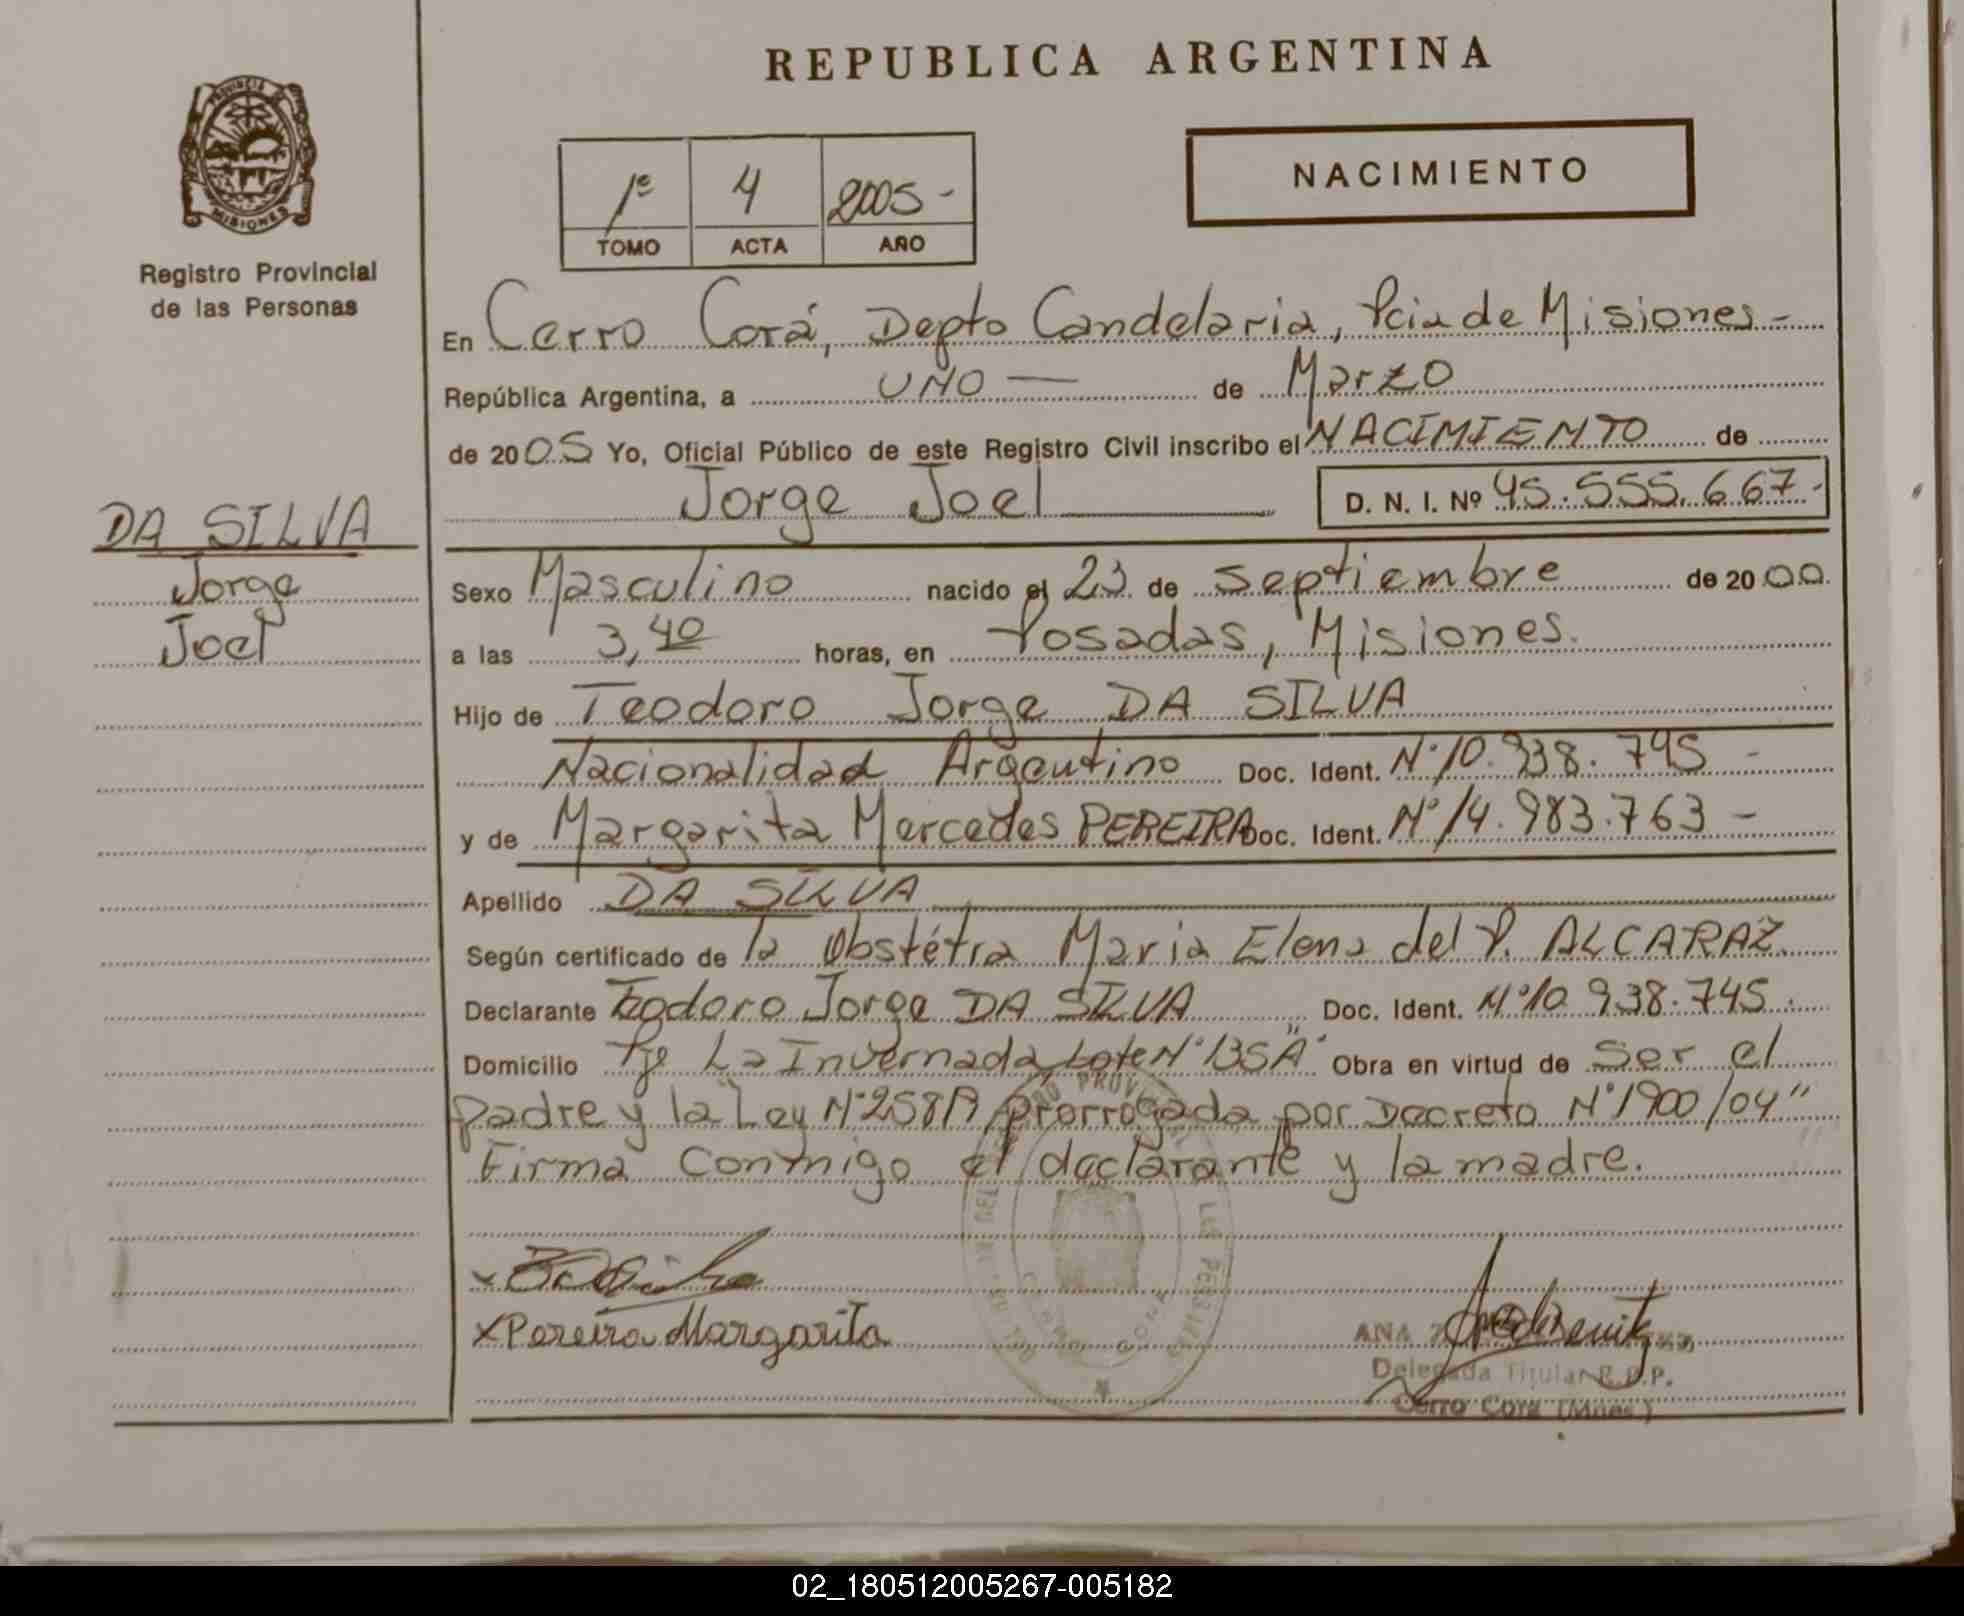 REPUBLICA ARGENTINA
PROVINCIA DE
MISIONES
Registro Provincial
de las Personas
1º 4 2005-
TOMO ACTA AÑO
NACIMIENTO
En Cerro Corá, Depto Candelaria, Pcia de Misiones-
República Argentina, a UNO — de Marzo
de 2005 Yo, Oficial Público de este Registro Civil inscribo el NACIMIENTO de
Jorge Joel D. N. I. Nº 45.555.667-
DA SILVA
Jorge
Joel
Sexo Masculino nacido el 23 de Septiembre de 2000
a las 3,40 horas, en Posadas, Misiones.
Hijo de Teodoro Jorge DA SILVA
Nacionalidad Argentino Doc. Ident. Nº 10.938.745 -
y de Margarita Mercedes PEREIRA Doc. Ident. Nº 14.983.763 -
Apellido DA SILVA
Según certificado de la Obstétra Maria Elena del P. ALCARAZ
Declarante Teodoro Jorge DA SILVA Doc. Ident. Nº 10.938.745.
Domicilio Pje La Invernada, Lote Nº 135"A" Obra en virtud de Ser el
padre y la "Ley Nº 258A prorrogada por Decreto Nº 1900/04"
Firma conmigo el declarante y la madre.
x
x Pereira Margarita
ANA
Delegada Titular R.P.P.
Cerro Cora (Mnes.)
02_180512005267-005182